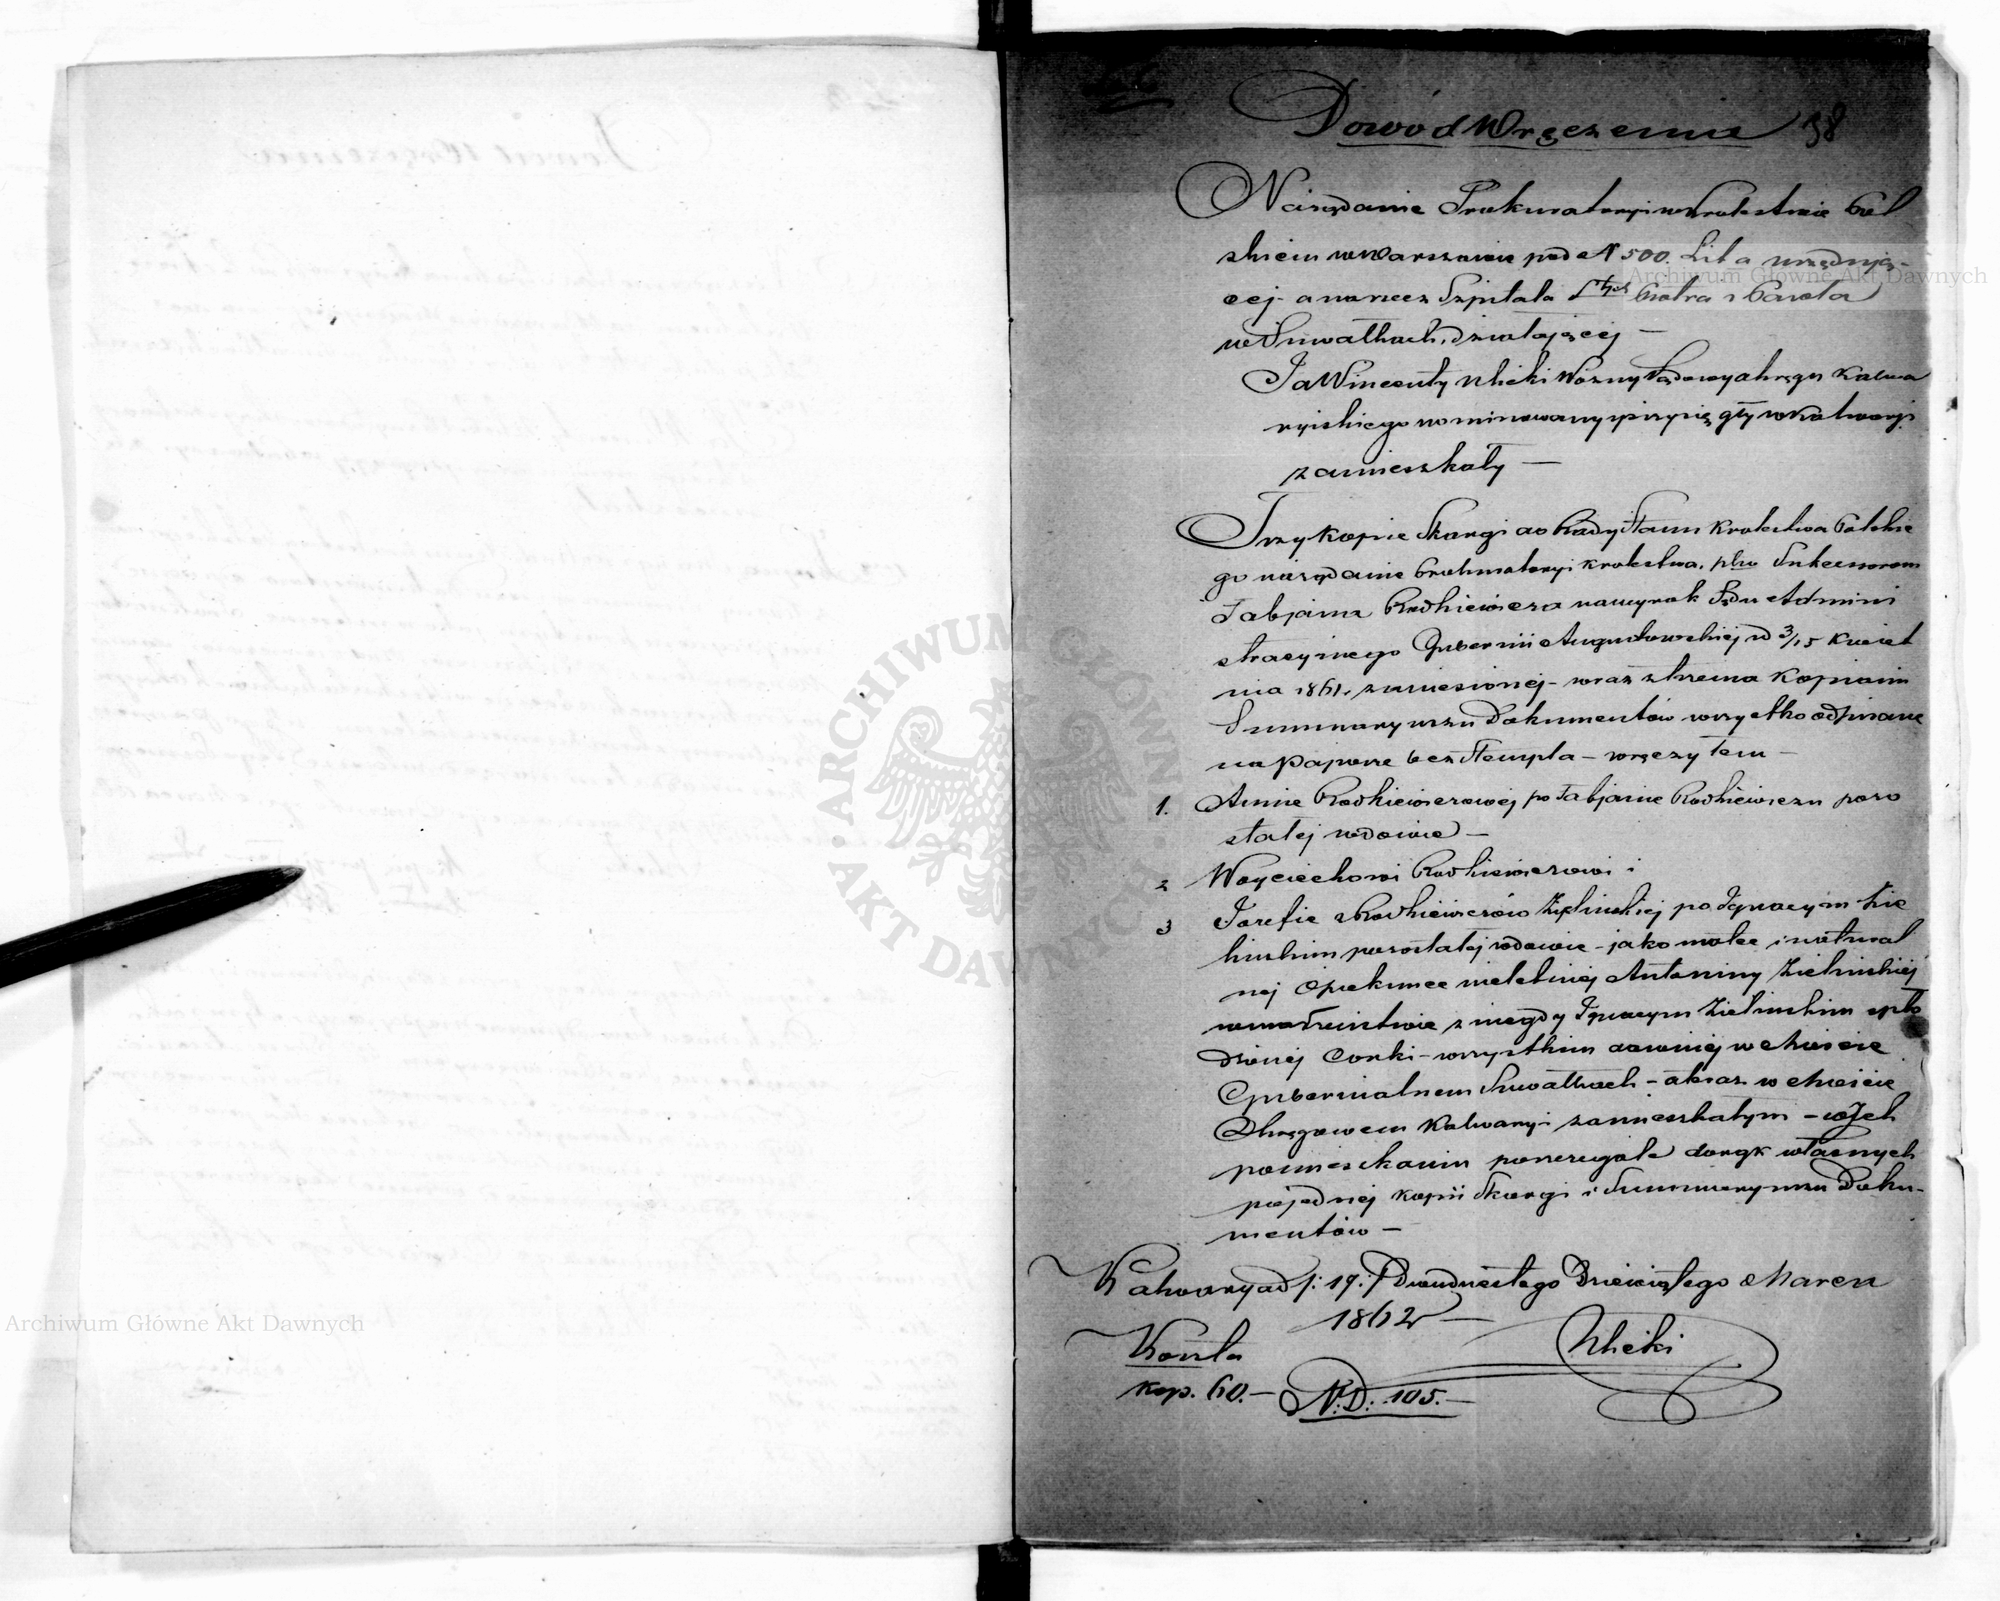 Dowód Wręczenia 38
Na żądanie Prokuratoryi w Królestwie Pol
skiem w Warszawie pod N 500. Lit a urzędują-
cej - a na rzecz Szpitala Stych Piotra i Pawła
w Suwałkach, działającej —
Ja Wincenty Ulicki Woźny Sądowy okręgu Kalwa
ryiskiego nominowany i przysięgły w Kalwaryi
zamieszkały —
Trzy kopie Skargi do Rady Stanu Królestwa Polskie
go na żądanie Prokuratoryi Królestwa, pko Sukcessorom
Fabjana Rodkiewicza na wyrok Sądu Admini
stracyinego Gubernii Augustowskiej w d 3/15 Kwiet
nia 1861. zaniesionej - wraz z trzema Kopiami
Summaryuszu Dokumentów wszystko odpisane
na papierze bez Stempla - wręczyłem -
1. Annie Rodkiewiczowej po Fabjanie Rodkiewiczu pozo
stałej wdowie —
2 Woyciechowi Rodkiewiczowi i
3 Józefie z Rodkiewiczów Zielinskiej po Ignacym Zie
linskim pozostałej wdowie - jako matce i natural
nej Opiekunce nieletniej Antoniny Zielinskiej
w małżeństwie z niegdy Ignacym Zielinskim spło
dzonej Corki - wszystkim dawniej w Mieście
Gubernialnem Suwałkach - a teraz w Mieście
Okręgowem Kalwaryi zamieszkałym - w Ich
pomieszkaniu do rąk własnych
po jednej kopii Skargi i Summaryuszu Doku-
mentów —
Kalwarya d /:19:/ Dziewiętego Marca
1862 r —
Koszta
Ulicki
kop. 60. —
N:D: 105. —
Archiwum Główne Akt Dawnych
Archiwum Główne Akt Dawnych
ARCHIWUM GŁÓWNE AKT DAWNYCH